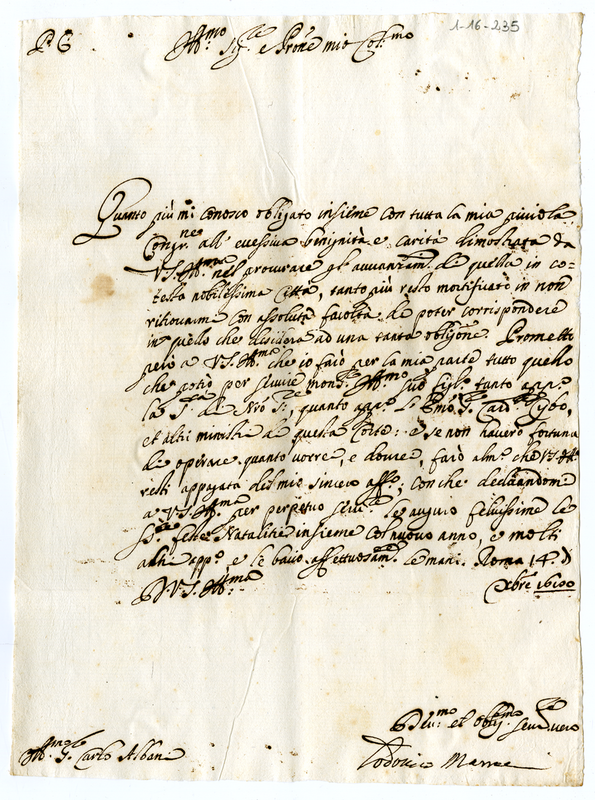 1-16-235
P. C.
Ill.mo Sig.re e Prone mio Col.mo
Quanto più mi conosco obligato insieme con tutta la mia piccola
Congr.ne all' eccessiva benignità e carità dimostrata da
V.S. Ill.ma nel procurare gl' avvanzam.ti di quella in co-
testa nobilissima Città, tanto più resto mortificato in non
ritrovarme con assoluta facoltà de poter corrispondere
in quello che desidera ad una tanta oblig.one. Prometto
però a V.S. Ill.ma che io farò per la mia parte tutto quello
che potrò per servire mons.r Ill.mo suo fig.lo tanto app.o
la S.tà di Nro S.re, quanto app.o l' Emo S. Card.le Cybo,
et altri ministri de questa Corte: e se non haverò fortuna
de operare quanto vorrei, e dovrei, farò alm.o che V.S. Ill.ma
resti appagata del mio sincero aff.o, con che declarandomi
a V.S. Ill.ma per perpetuo ser.re le auguro felicissime le
S.te feste Natalitie insieme col nuovo anno, e molti
altri app.o e le bacio affettuosam.te le mani. Roma 14. d
Xbre 1680
D. V.S. Ill.ma
Dev.mo et oblig.mo serv.re vero
Ill.mo S. Carlo Albani
Lodovico